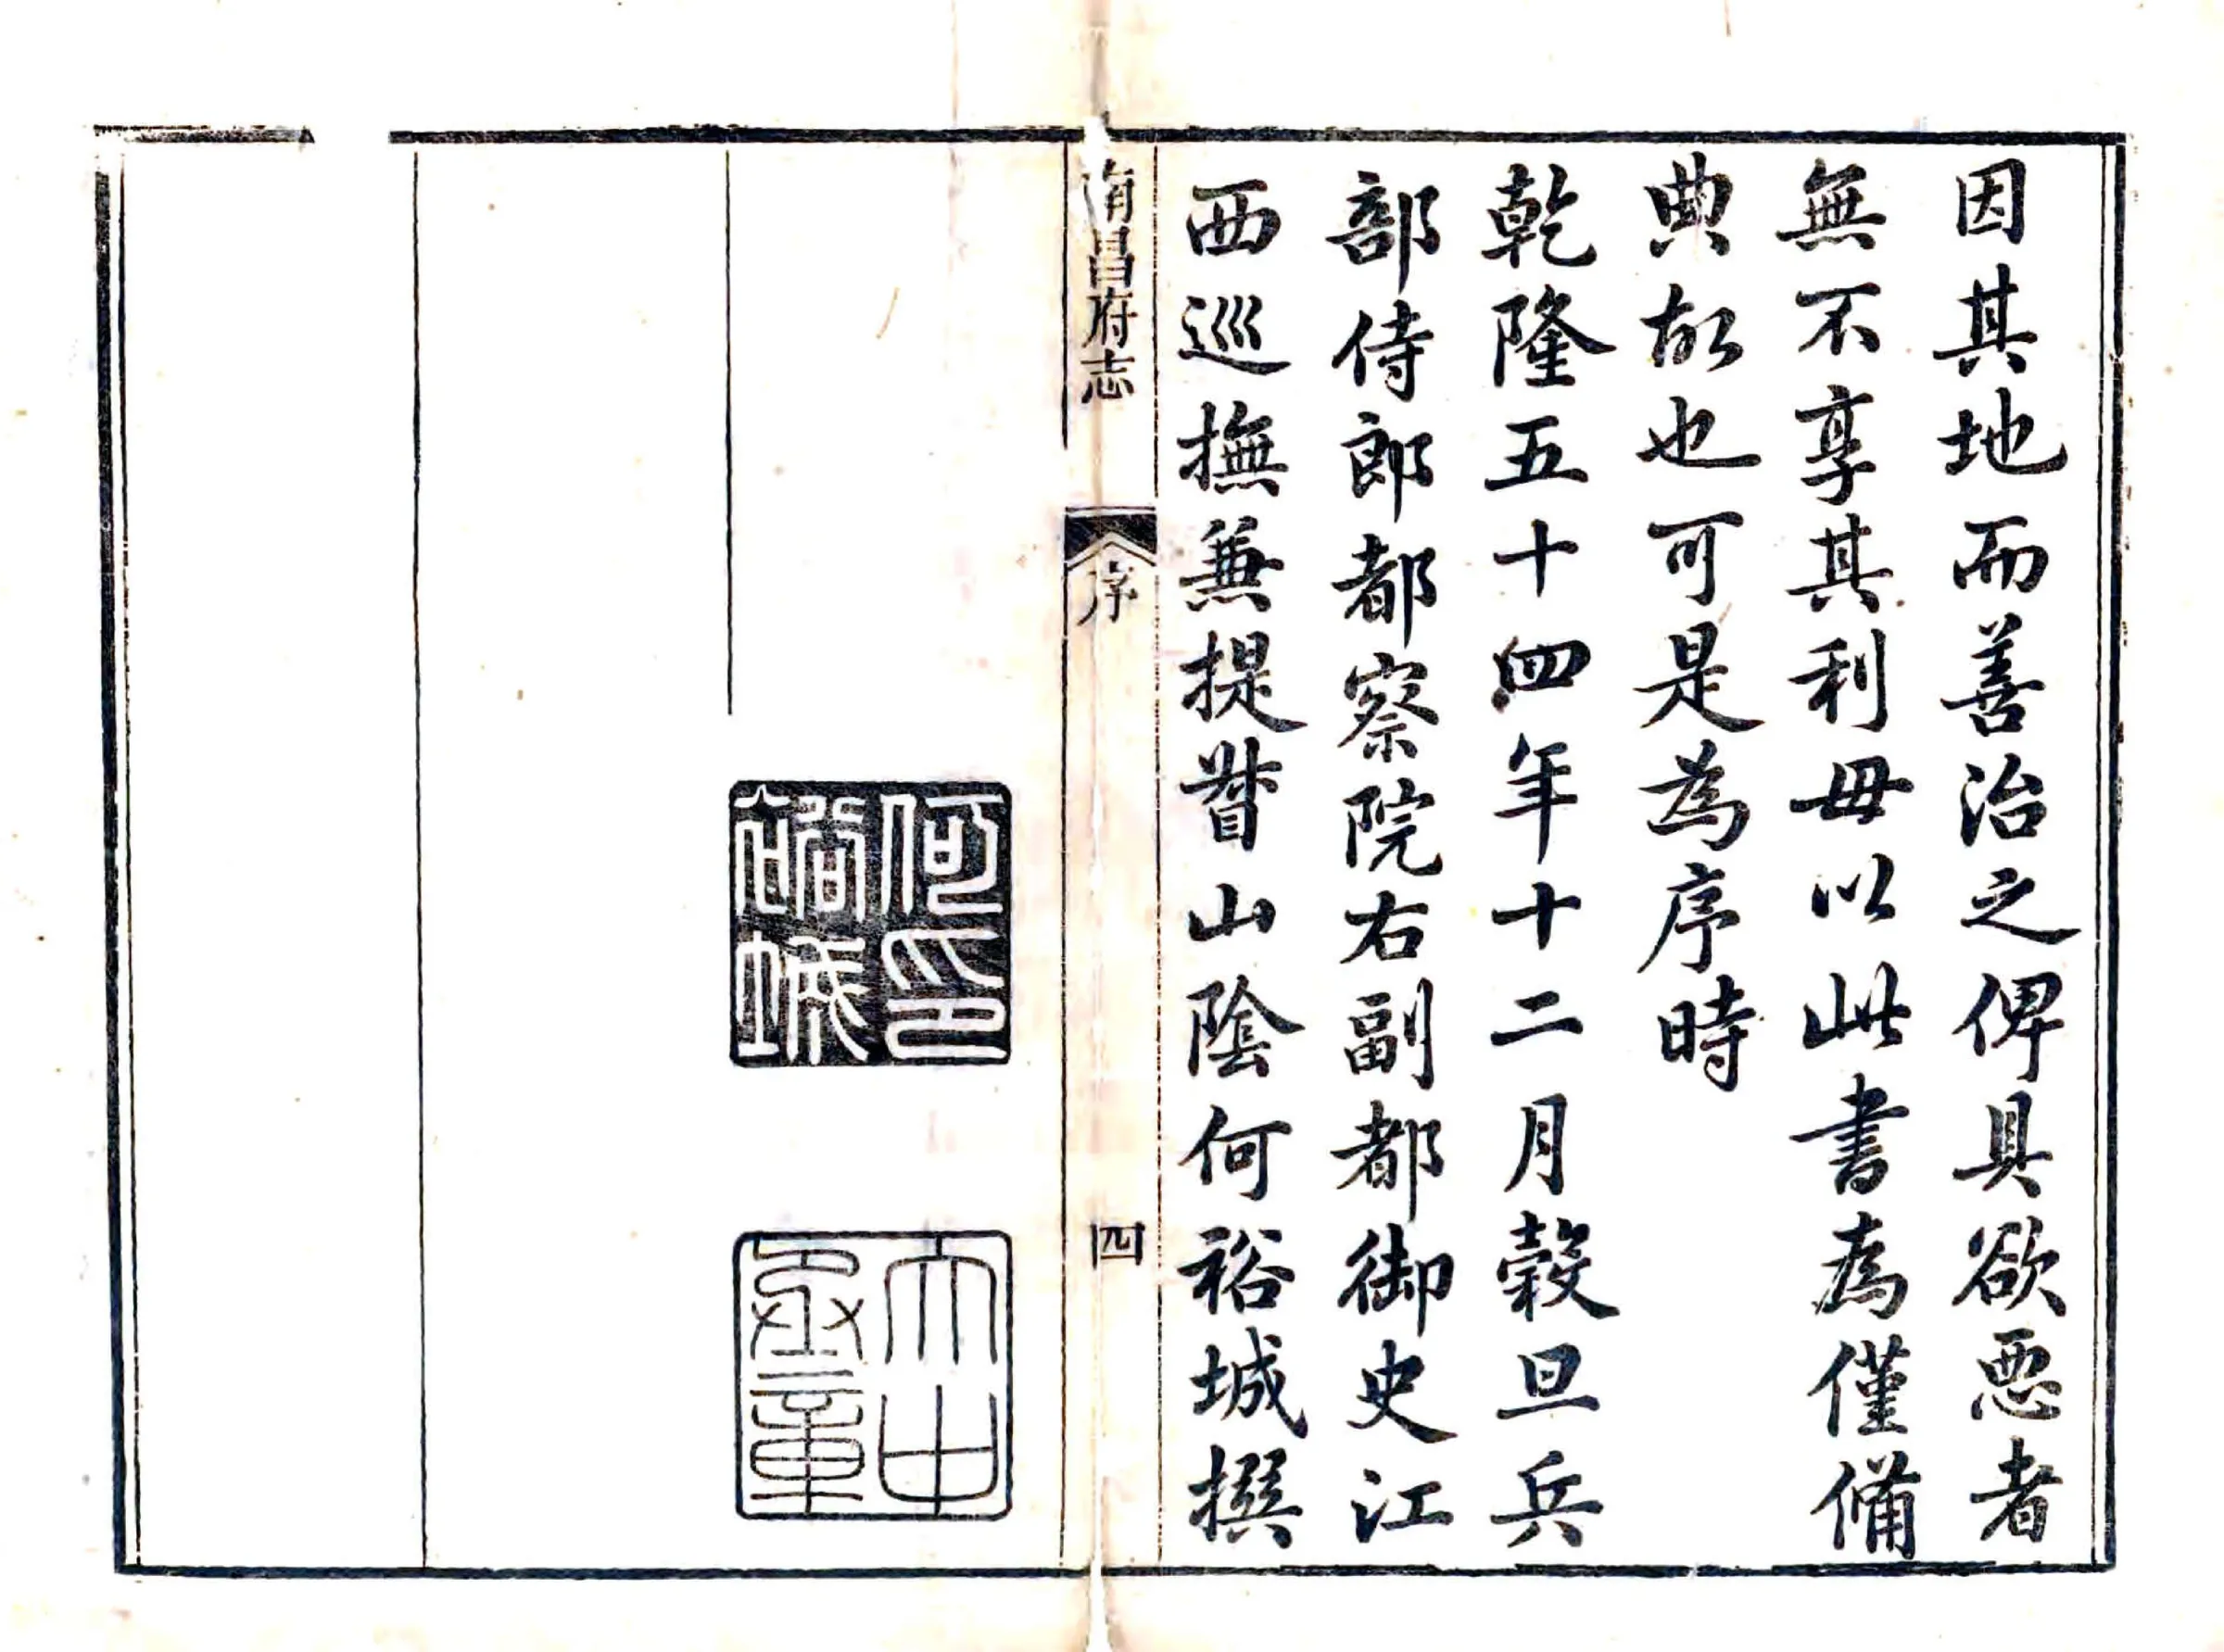 因其地而善治之俾具欲惡者
無不享其利毋以此書為僅備
典故也可是為序時
乾隆五十四年十二月穀旦兵
部侍郎都察院右副都御史江
西巡撫兼提督山陰何裕城撰
南昌府志
序
四
何印裕城
大中丞章